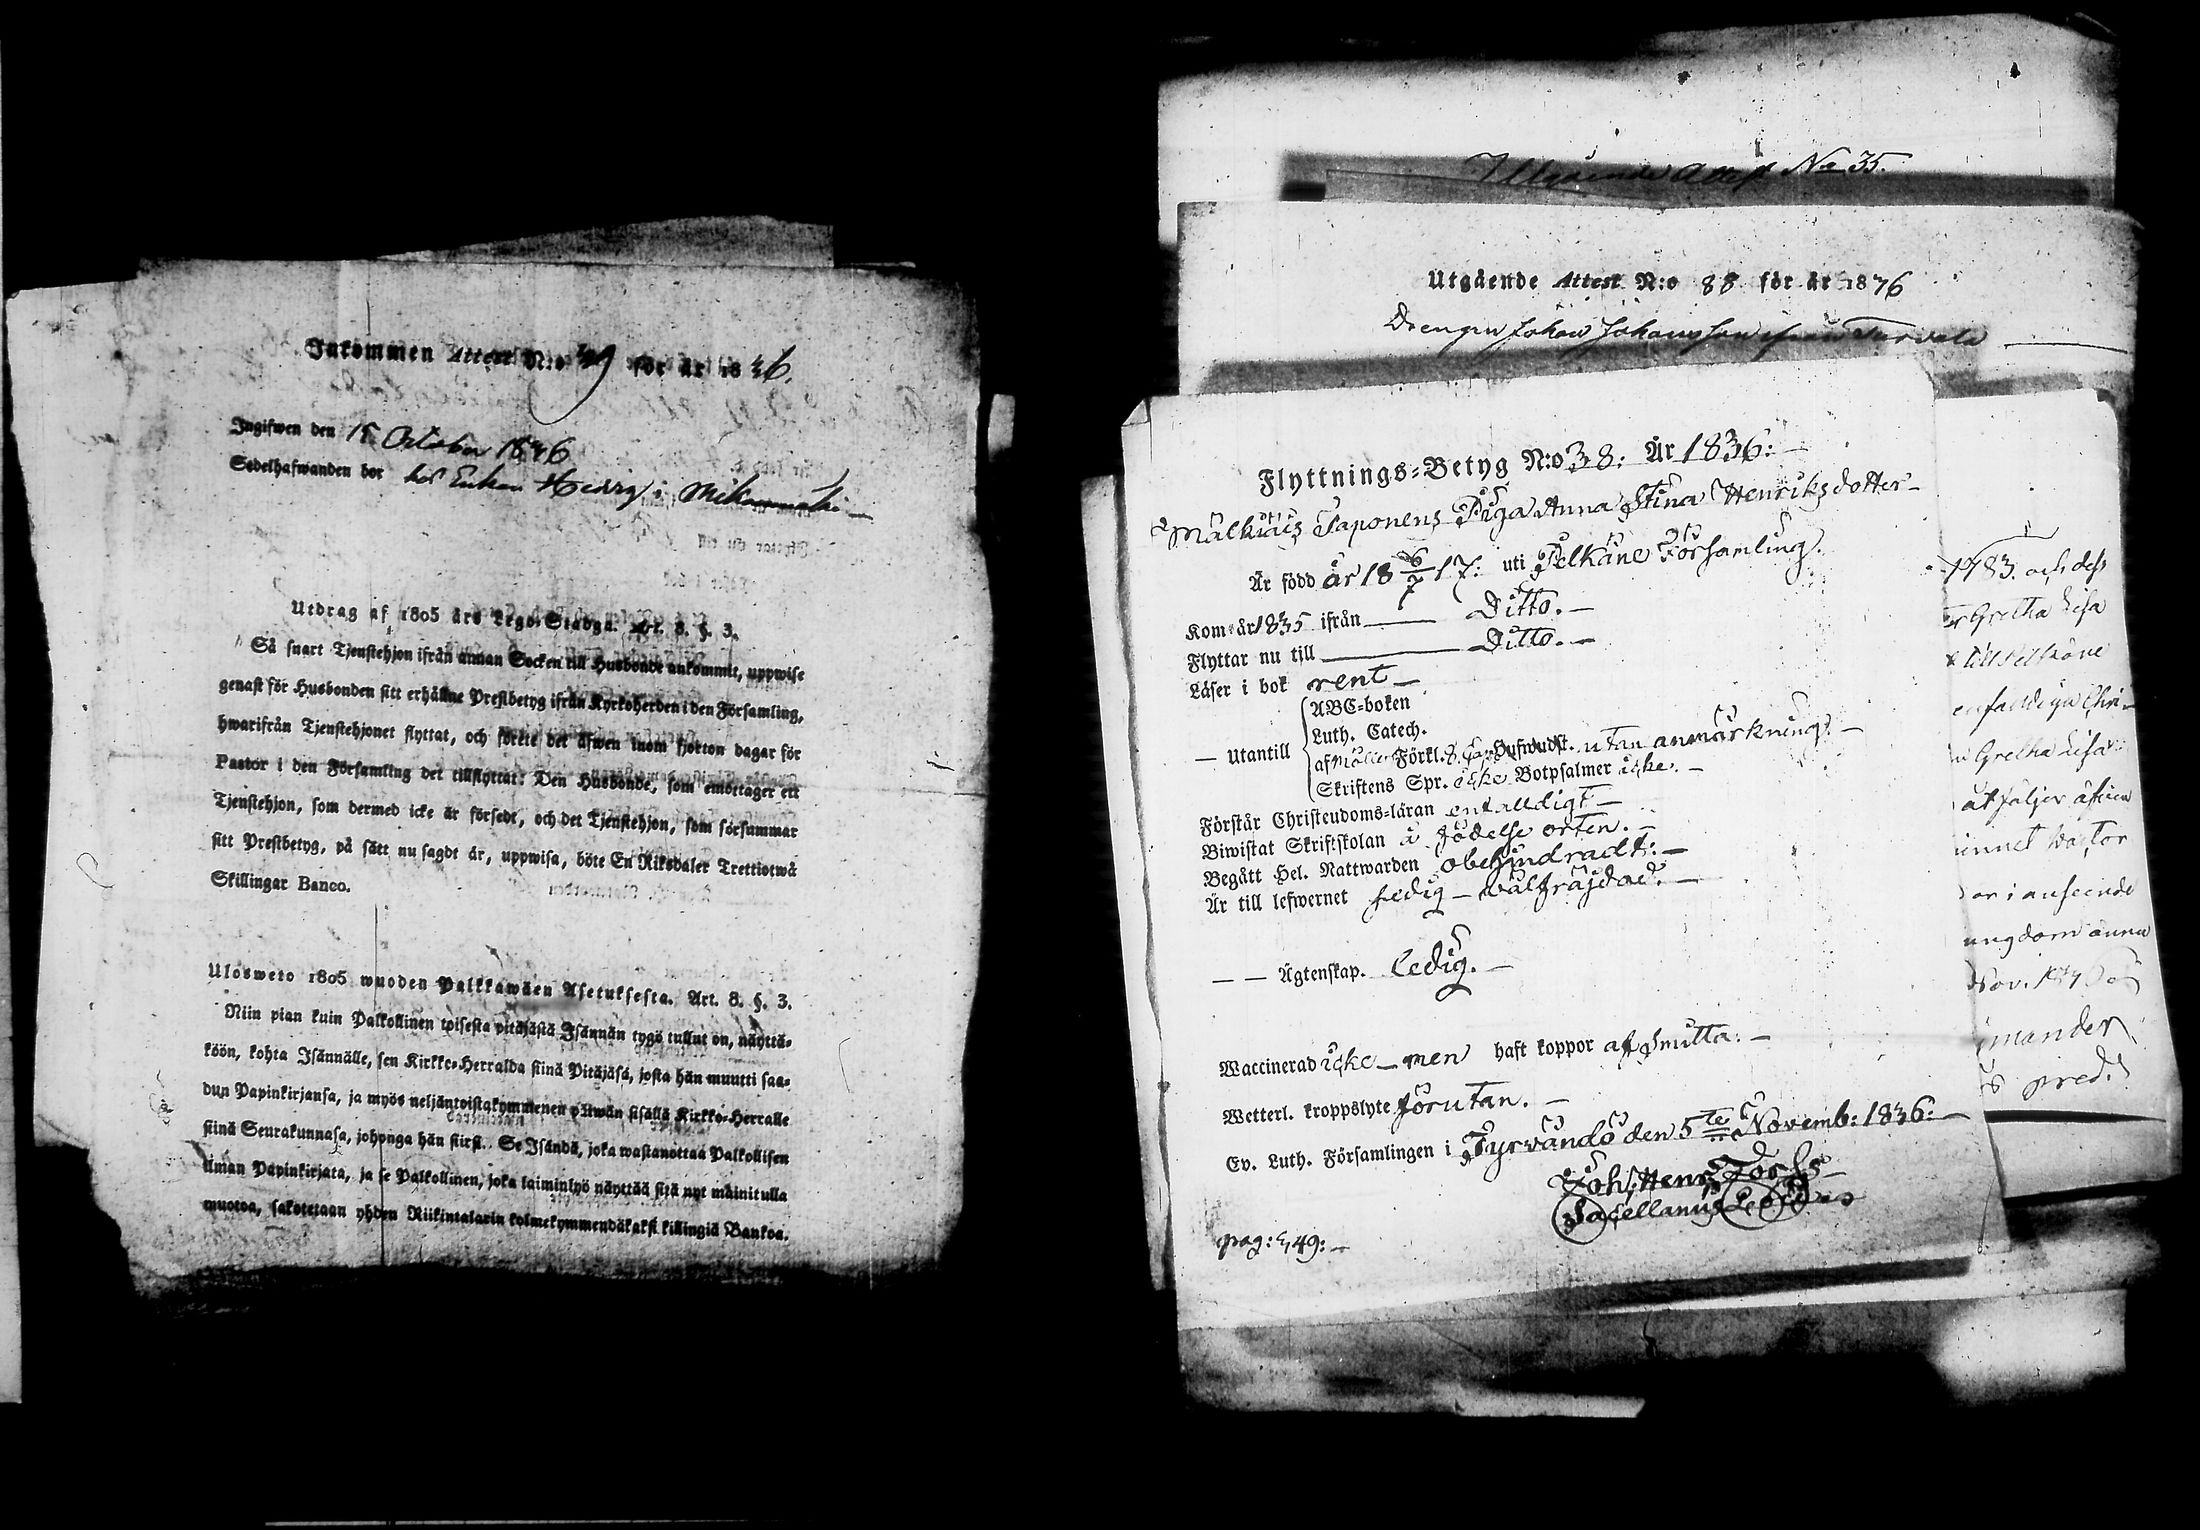 Inkommen Attest N:o 49 för år 1846.
Ingifwen den 15 October 1846
Sedelhafwanden bor hos Enkan Hedvig i
Utdrag af 1805 års Lego-Stadga. Art. 8. §. 3.
"Så snart Tjenstehjon ifrån annan Socken till Husbonde ankommit, uppwise
genast för Husbonden sitt erhållne Prestbetyg ifrån Kyrkoherden i den Församling,
hwarifrån Tjenstehjonet flyttat, och förete det äfwen inom fjorton dagar för
Pastor i den Församling det tillflyttat: Den Husbonde, som emottager ett
Tjenstehjon, som dermed icke är försedt, och det Tjenstehjon, som försummar
sitt Prestbetyg, på sätt nu sagdt är, uppwisa, böte En Riksdaler Trettiotwå
Skillingar Banco.
Ulosweto 1805 wuoden Palkkawäen Asetuksesta. Art. 8. §. 3.
Niin pian kuin Palkollinen toisesta pitäjästä Isännän tygö tullut on, näyttä-
köön, kohta Isännälle, sen Kirkko-Herralda siinä Pitäjäsä, josta hän muutti saa-
dun Papinkirjansa, ja myös neljäntoistakymmenen päiwän sisällä Kirkko-Herralle
siinä Seurakunnasa, johonga hän siirsi. Se Isändä, joka wastanottaa Palkollisen
ilman Papinkirjata, ja se Palkollinen, joka laiminlyö näyttää sitä nyt mainitulla
muotoa, sakotetaan yhden Riikintalarin kolmekymmendäkaksi killingiä Bankoa.
Utgående Attest No 35.
Utgående Attest N:o 88 för år 1876
Drengen Johan Johansson ifrån
Flyttnings-Betyg N:o 38: År 1836:
Saponens Piga Anna Stina Henriksdotter
Är född år 18 6/7 17: uti Pelkäne Församling.
Kom år 1835 ifrån Ditto.
Flyttar nu till Ditto.
Läser i bok rent
— Utantill
ABC-boken
Luth. Catech.
af Möllers Förkl. 8. Cap. Hufwudst. utan anmärkning.
Skriftens Spr. icke Botpsalmer icke.
Förstår Christendoms-läran enfalldigt
Biwistat Skriftskolan å födelse orten.
Begått Hel. Nattwarden obehindradt:
Är till lefwernet fredig — wälfräjdad.
— — Ägtenskap. Ledig.
Waccinerad icke — men haft koppor af smitta.
Wetterl. kroppslyte förutan.
Ev. Luth. Församlingen i Tyrvändö den 5te Novemb: 1836:
Joh: Henr: Forss
Sacellanus
pag: 449:
1783. och dess
Gretha Lisa
till Pelkäne
enfalldiga Chri-
Gretha Lisa
at följer äfwen
or i anseende
ungdom
Nov. 1836